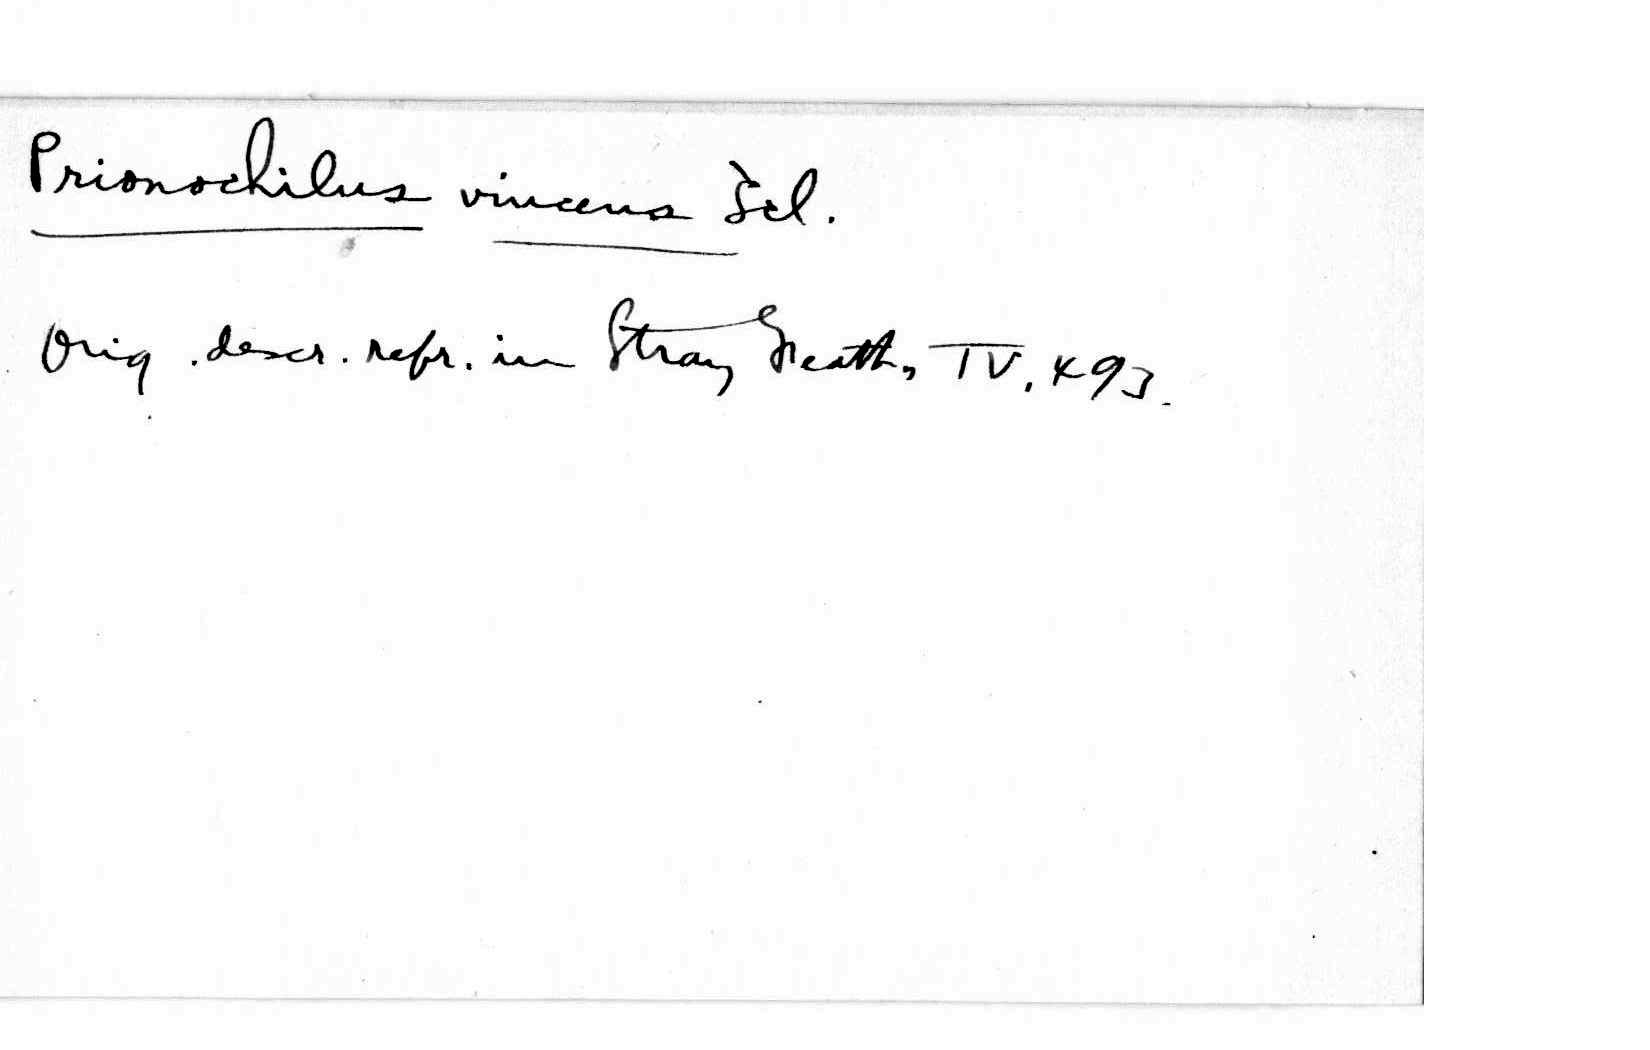 Prionochilus vincens Scl.
Orig. descr. repr. in Stray Feath., IV, 493.